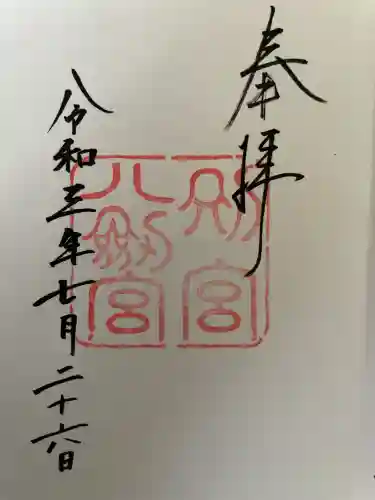 奉拝
別宮
八剣宮
令和三年七月二十六日